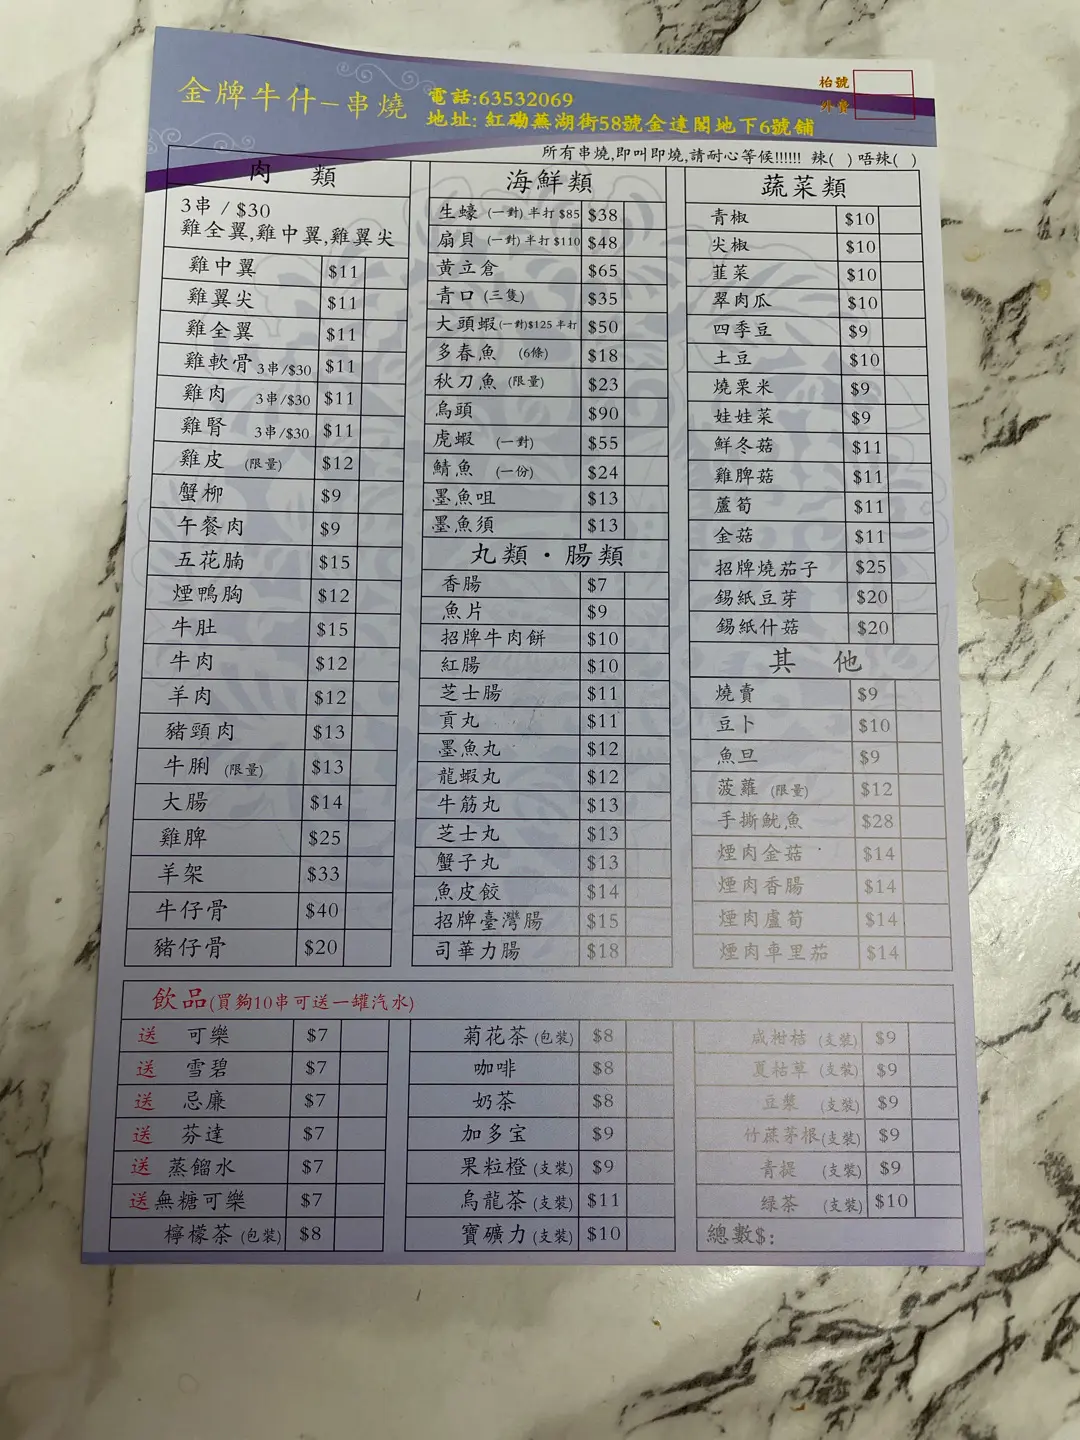 金牌牛什–串燒
電話:63532069
地址: 紅磡蕪湖街58號金達閣地下6號舖
枱號
外賣
所有串燒,即叫即燒,請耐心等候!!!!!! 辣( ) 唔辣( )
肉 類
3串 / $30
雞全翼,雞中翼,雞翼尖
雞中翼 $11
雞翼尖 $11
雞全翼 $11
雞軟骨 3串/$30 $11
雞肉 3串/$30 $11
雞腎 3串/$30 $11
雞皮 (限量) $12
蟹柳 $9
午餐肉 $9
五花腩 $15
煙鴨胸 $12
牛肚 $15
牛肉 $12
羊肉 $12
豬頸肉 $13
牛脷 (限量) $13
大腸 $14
雞脾 $25
羊架 $33
牛仔骨 $40
豬仔骨 $20
海鮮類
生蠔 (一對) 半打 $85 $38
扇貝 (一對) 半打 $110 $48
黃立倉 $65
青口 (三隻) $35
大頭蝦(一對)$125 半打 $50
多春魚 (6條) $18
秋刀魚 (限量) $23
烏頭 $90
虎蝦 (一對) $55
鯖魚 (一份) $24
墨魚咀 $13
墨魚須 $13
丸類・腸類
香腸 $7
魚片 $9
招牌牛肉餅 $10
紅腸 $10
芝士腸 $11
貢丸 $11
墨魚丸 $12
龍蝦丸 $12
牛筋丸 $13
芝士丸 $13
蟹子丸 $13
魚皮餃 $14
招牌臺灣腸 $15
司華力腸 $18
蔬菜類
青椒 $10
尖椒 $10
韮菜 $10
翠肉瓜 $10
四季豆 $9
土豆 $10
燒粟米 $9
娃娃菜 $9
鮮冬菇 $11
雞脾菇 $11
蘆筍 $11
金菇 $11
招牌燒茄子 $25
錫紙豆芽 $20
錫紙什菇 $20
其 他
燒賣 $9
豆卜 $10
魚旦 $9
菠蘿 (限量) $12
手撕魷魚 $28
煙肉金菇 $14
煙肉香腸 $14
煙肉盧筍 $14
煙肉車里茄 $14
飲品(買夠10串可送一罐汽水)
送 可樂 $7
送 雪碧 $7
送 忌廉 $7
送 芬達 $7
送 蒸餾水 $7
送 無糖可樂 $7
檸檬茶 (包裝) $8
菊花茶 (包裝) $8
咖啡 $8
奶茶 $8
加多宝 $9
果粒橙 (支裝) $9
烏龍茶 (支裝) $11
寶礦力 (支裝) $10
咸柑桔 (支裝) $9
夏枯草 (支裝) $9
豆漿 (支裝) $9
竹蔗茅根(支裝) $9
青提 (支裝) $9
绿茶 (支裝) $10
總數$: